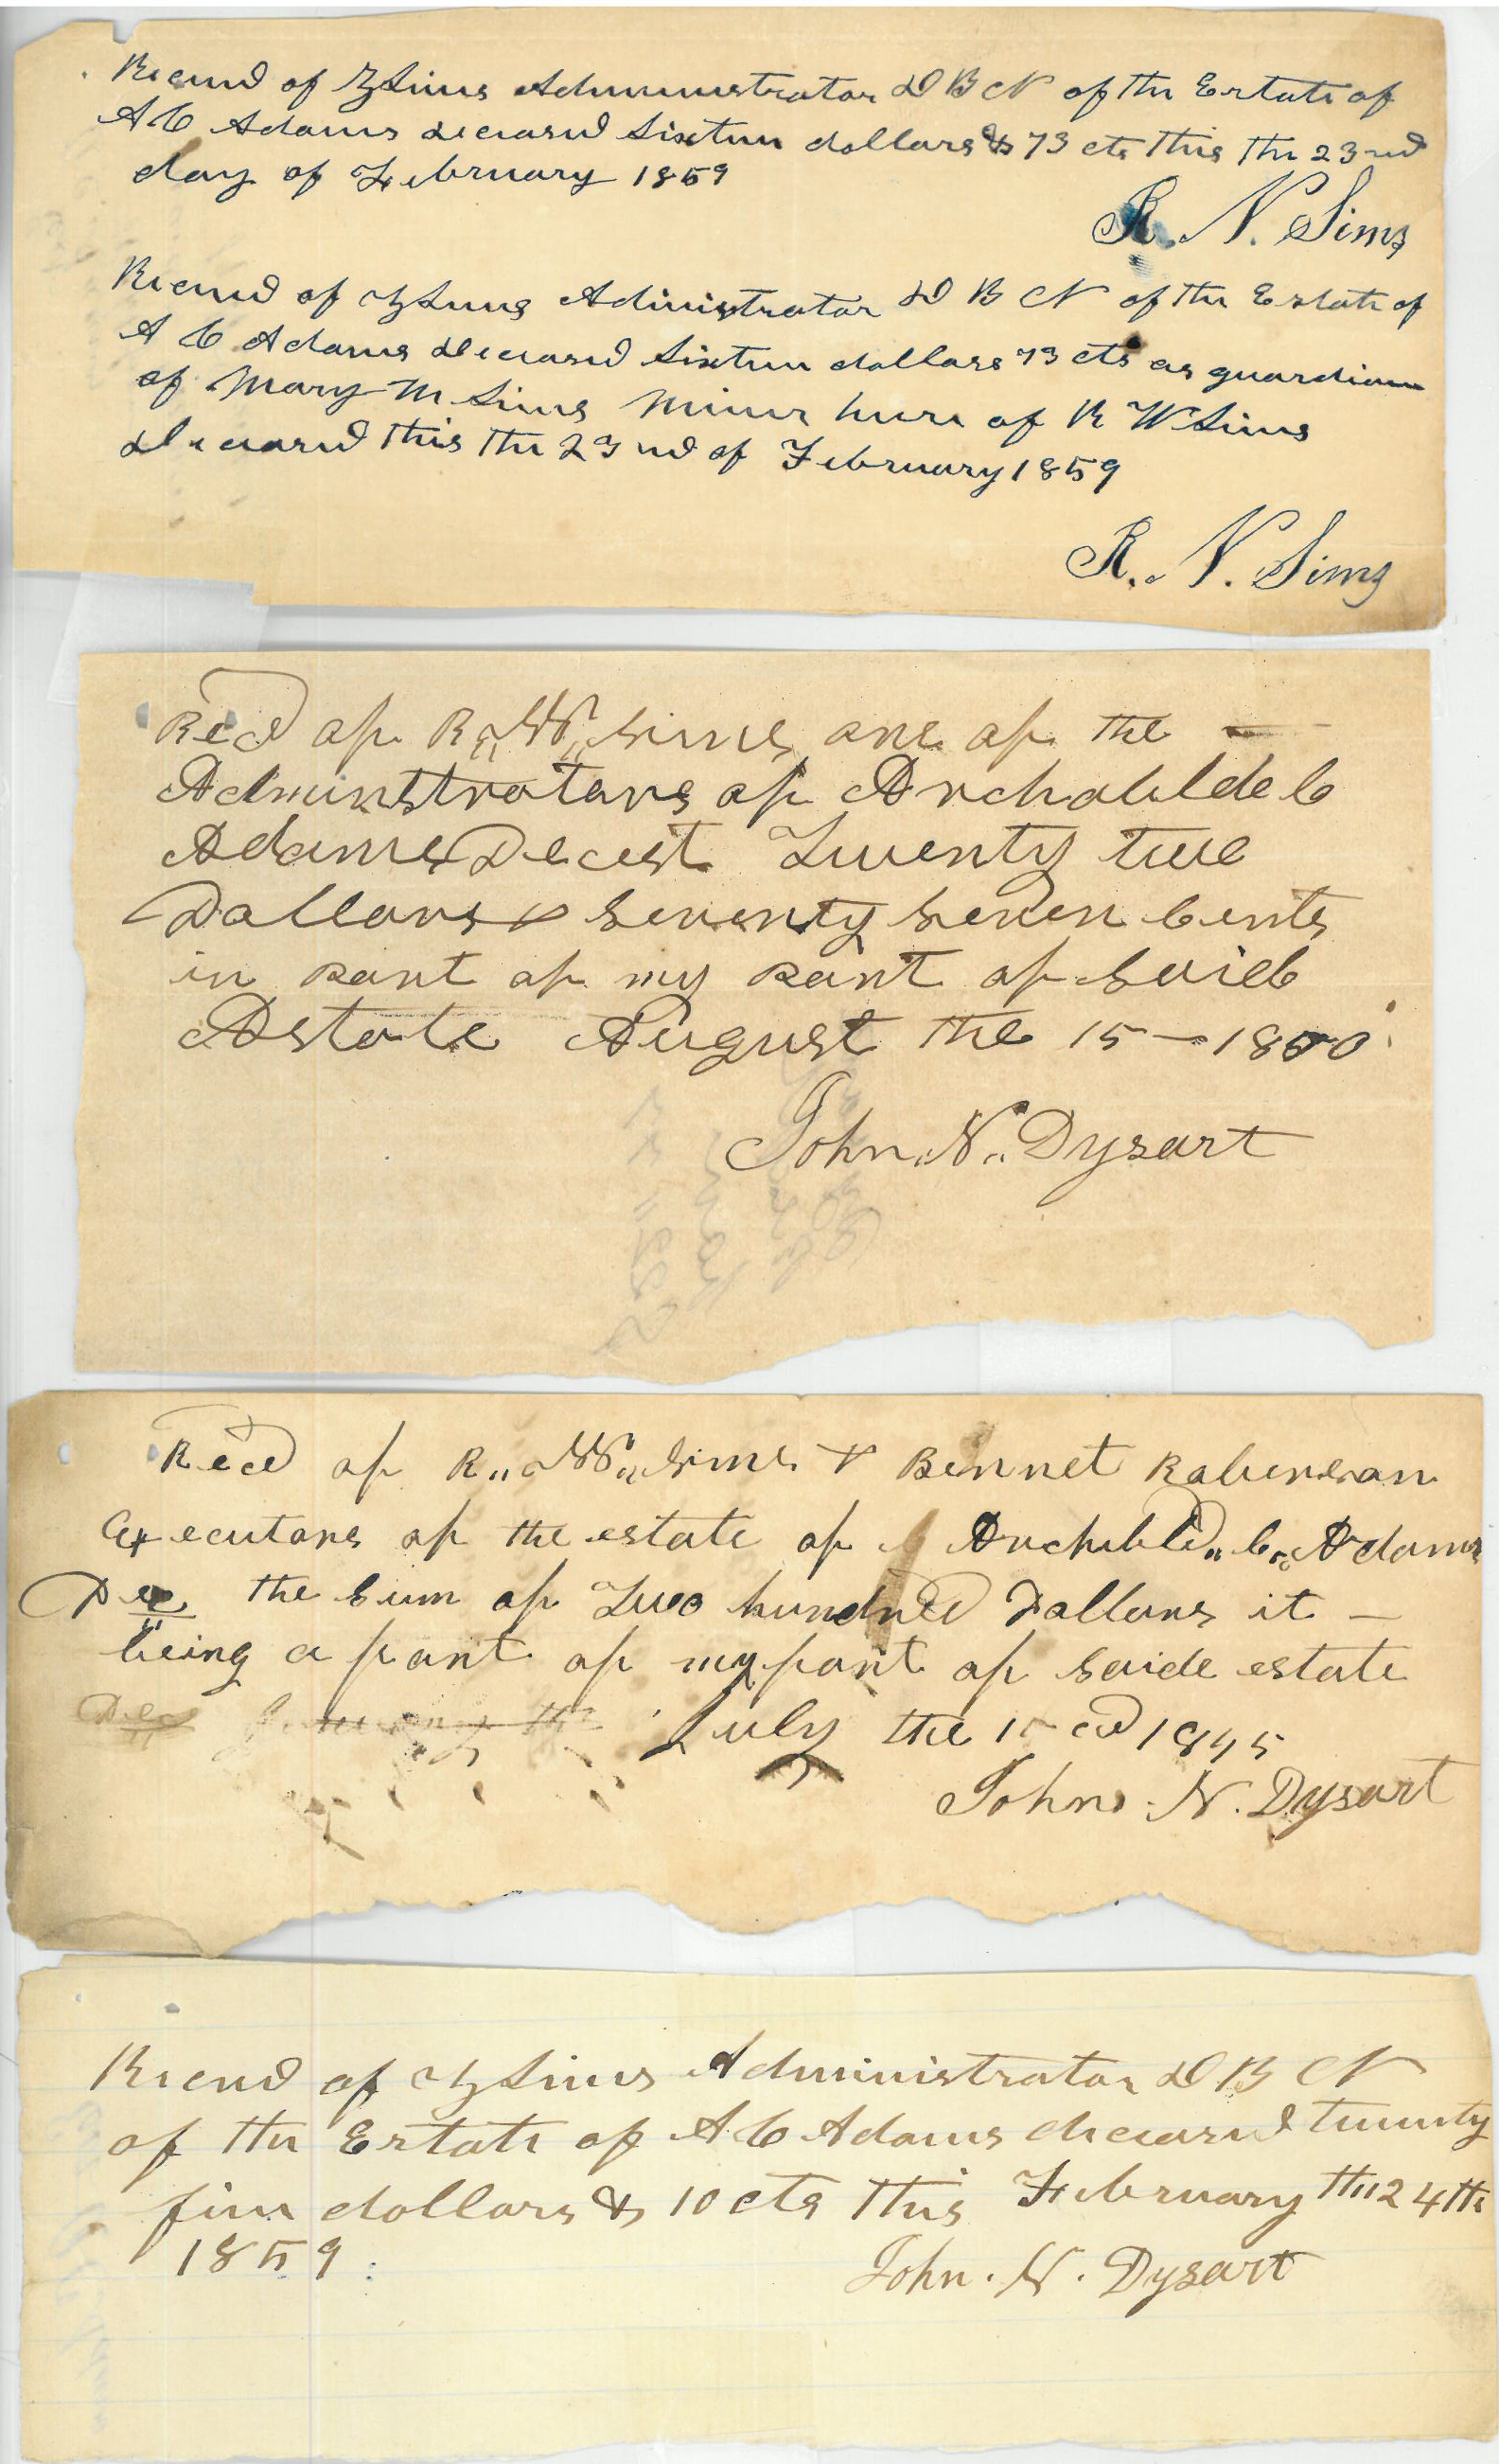 Recived of Z Sims Administrator D B N of the Estate of
A C Adams deceased Sixteen dollars & 73 cts this the 23rd
day of February 1859
R. N. Sims
Recived of Z Sims Administrator D B N of the Estate of
A C Adams deceased Sixteen dollars 73 cts as guardian
of Mary M Sims minor heir of R W Sims
deceased this the 23rd of February 1859
R. N. Sims
Recd of R,, W,, Sims one of the
Adminstrators of Archabilde C
Adams Decest Twenty two
Dollars & Seventy Seven Cents
in part of my part of Said
Astate August the 15 - 1850
John,, N,, Dysart
Recd of R,, W,, Sims & Bennet Raberson
Executors of the estate of Archibld,, C,, Adams
Dec the Sum of Two hundred Dollars it
being a part of my part of Saide estate
Dec January the July the 15 1845
John. N. Dysart
Recived of Z Sims Administrator D B N
of the Estate of A C Adams deceased twenty
five dollars & 10 cts this February the 24th
1859
John. N. Dysart